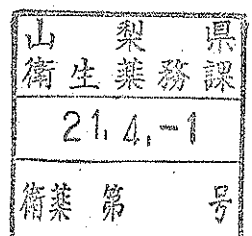 山梨県
衛生薬務課
21.4.-1
衛薬 第 号